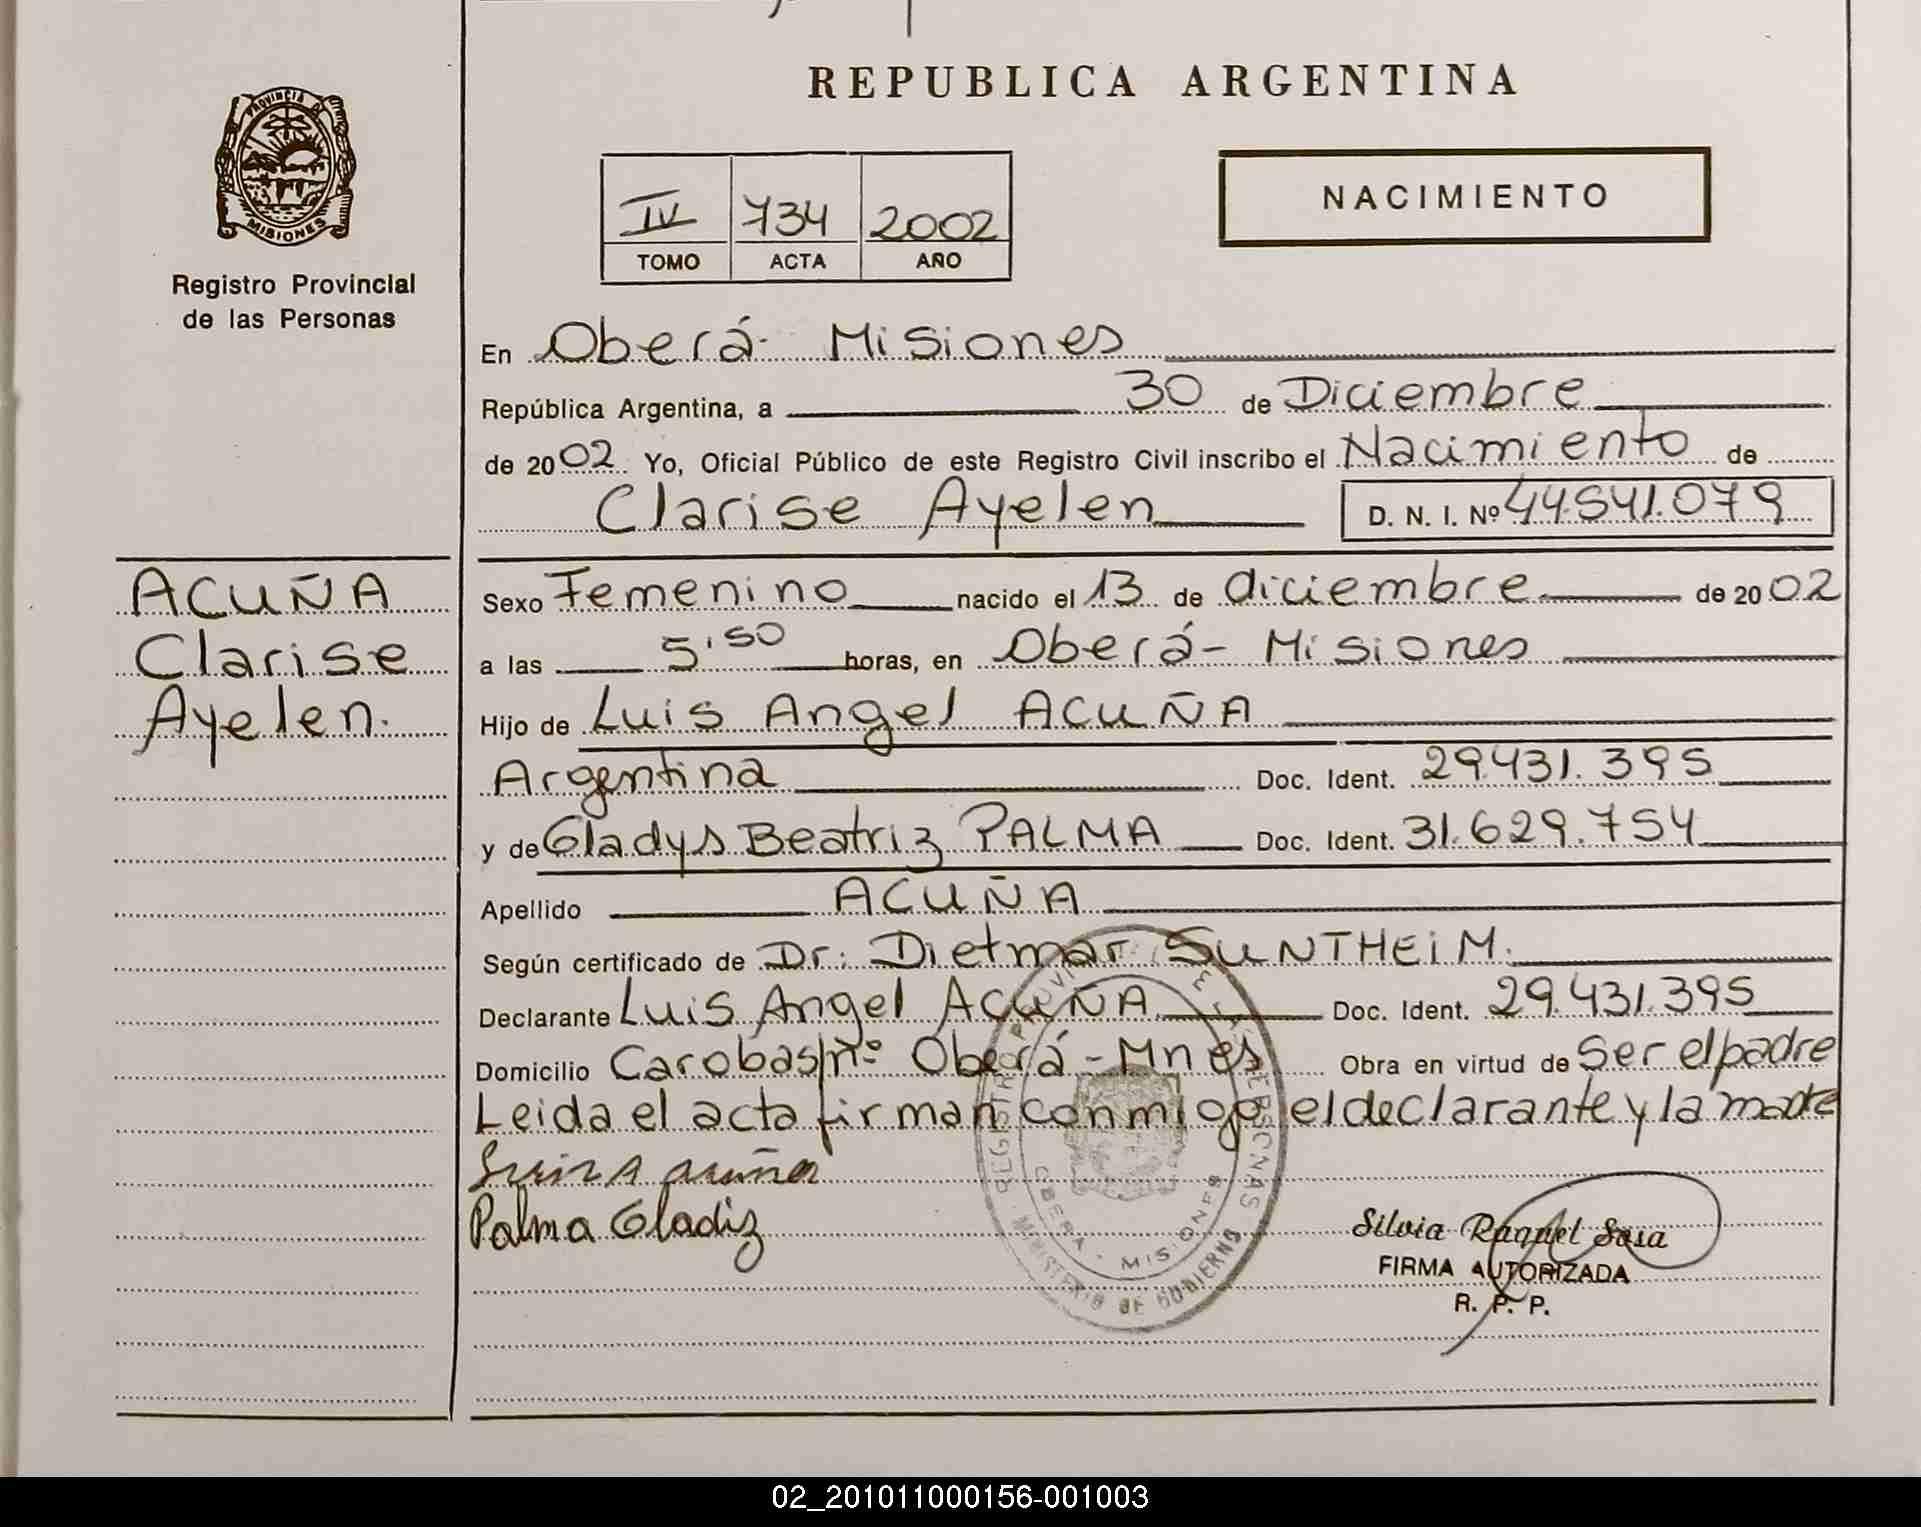 REPUBLICA ARGENTINA
PROVINCIA DE
MISIONES
Registro Provincial
de las Personas
IV 734 2002
TOMO ACTA AÑO
NACIMIENTO
En Oberá - Misiones
República Argentina, a 30 de Diciembre
de 2002 Yo, Oficial Público de este Registro Civil inscribo el Nacimiento de
Clarise Ayelen D. N. I. Nº 44.541.079
ACUÑA
Clarise
Ayelen.
Sexo Femenino nacido el 13 de diciembre de 2002
a las 5'50 horas, en Oberá - Misiones
Hijo de Luis Angel ACUÑA
Argentina Doc. Ident. 29.431.395
y de Gladys Beatriz PALMA Doc. Ident. 31.629.754
Apellido ACUÑA
Según certificado de Dr: Dietmar SUNTHEIM.
Declarante Luis Angel ACUÑA Doc. Ident. 29.431.395
Domicilio Caroba s/nº Oberá - Mnes Obra en virtud de Ser el padre
Leida el acta firman conmigo el declarante y la madre
Luis A acuña
Palma Gladiz
OBERA - MISIONES
MINISTERIO DE GOBIERNO
Silvia Raquel Sosa
FIRMA AUTORIZADA
R. P. P.
02_201011000156-001003